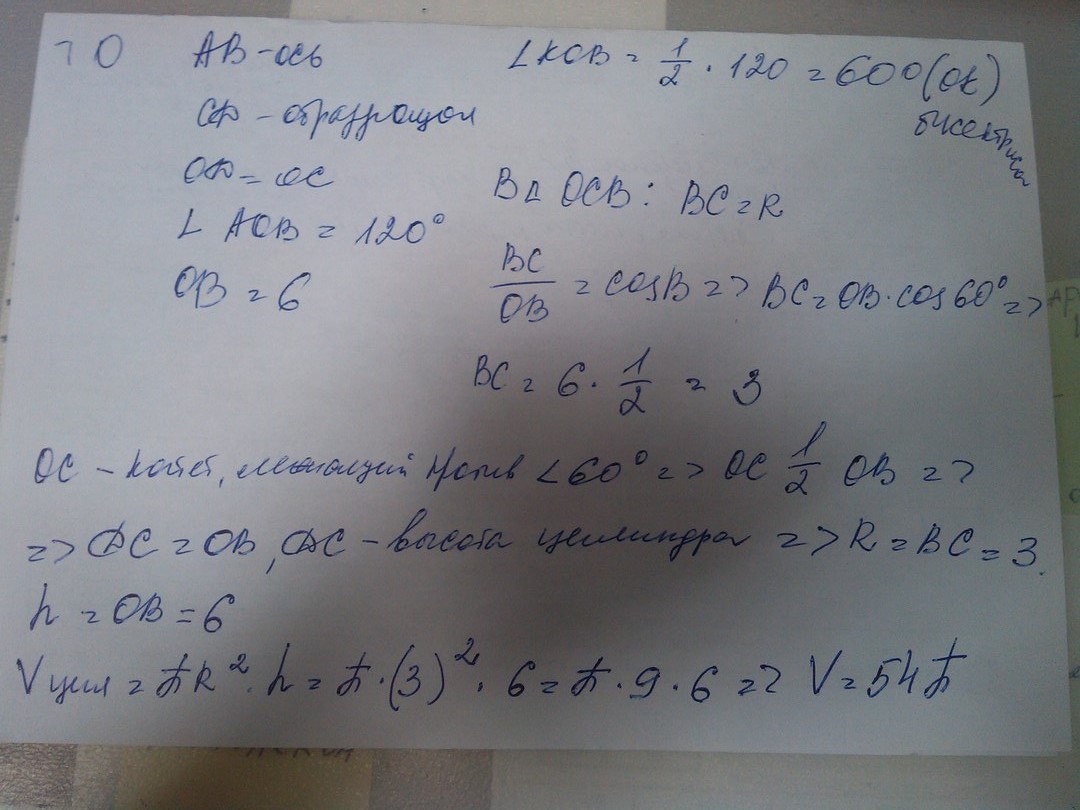 10
AB - ось
CD - образующая
OD = OC
∠ AOB = 120°
OB = 6
∠KOB = 1/2 · 120 = 60° (OK)
биссектриса
В △ OCB : BC = R
BC/OB = cosB => BC = OB · cos60° =>
BC = 6 · 1/2 = 3
OC - катет, лежащий против ∠60° => OC 1/2 OB =>
=> DC = OB, DC - высота цилиндра => R = BC = 3.
h = OB = 6
V цил = πR² · h = π · (3)² · 6 = π · 9 · 6 => V = 54π